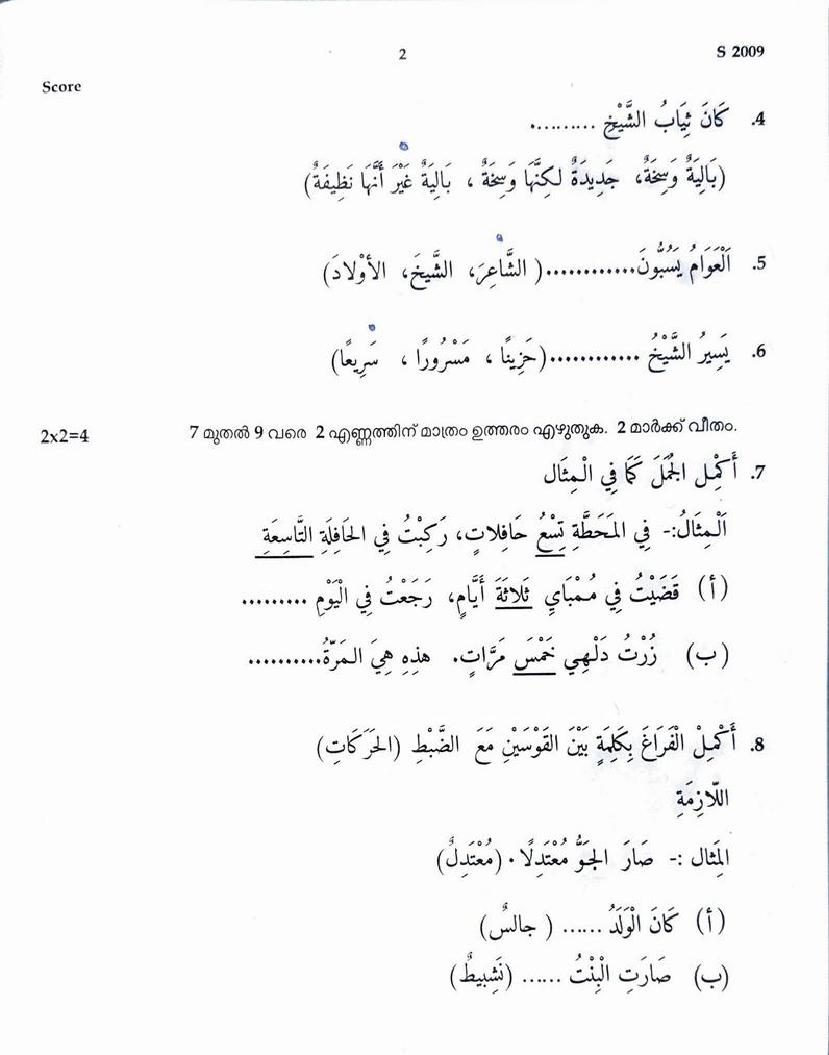 2
S 2009
Score
4. كَانَ ثِيَابُ الشَّيْخِ ..........
(بَالِيَةٌ وَسِخَةٌ، جَدِيدَةٌ لكِنَّهَا وَسِخَةٌ ، بَالِيَةٌ غَيْرَ أَنَّهَا نَظِيفَةٌ)
5. اَلْعَوَامُ يَسُبُّونَ............( الشَّاعِرَ، الشَّيخَ، الأوْلادَ)
6. يَسِيرُ الشَّيْخُ ............(حَزِينًا ، مَسْرُورًا ، سَرِيعًا)
7 മുതൽ 9 വരെ 2 എണ്ണത്തിന് മാത്രം ഉത്തരം എഴുതുക. 2 മാർക്ക് വീതം. 2x2=4
7. أَكْمِل الجُمَلَ كَمَا فِي الْمِثَال
اَلْمِثَالُ:- فِي المَحَطَّةِ تِسْعُ حَافِلاتٍ، رَكِبْتُ فِي الحَافِلَةِ التَّاسِعَةِ
(أ) قَضَيْتُ فِي مُمْبَايِ ثَلاثَةَ أَيَّامٍ، رَجَعْتُ فِي الْيَوْمِ .........
(ب) زُرْتُ دَلْهِي خَمْسَ مَرَّاتٍ. هذِهِ هِيَ المَرَّةُ..........
8. أَكْمِلْ الْفَرَاغَ بِكَلِمَةٍ بَيْنَ القَوْسَيْنِ مَعَ الضَّبْطِ (الحَرَكَاتِ)
اللَّازِمَةِ
المِثَال :- صَارَ الجَوُّ مُعْتَدِلًا . (مُعْتَدِلٌ)
(أ) كَانَ الْوَلَدُ ...... ( جالسٌ)
(ب) صَارَتِ الْبِنْتُ ...... (نَشِيطٌ)